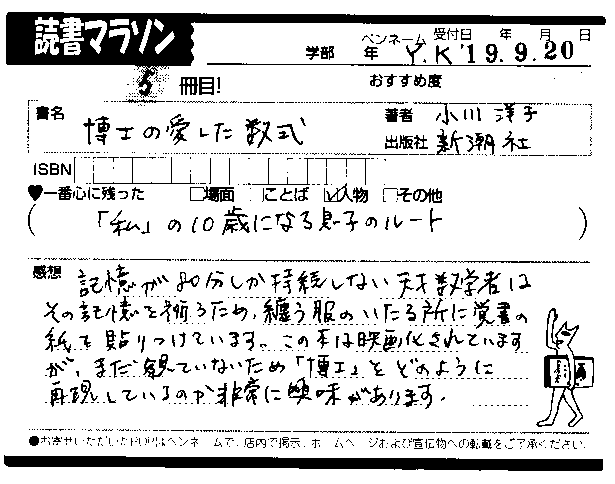 読書マラソン
学部 年 ペンネーム Y.K 受付日 '19年 9月 20日
5 冊目!
おすすめ度
書名 博士の愛した数式
著者 小川洋子
出版社 新潮社
ISBN
♥一番心に残った □場面 □ことば ☑人物 □その他
(「私」の10歳になる息子のルート)
感想 記憶が80分しか持続しない天才数学者は
その記憶を補うため、纏う服のいたる所に覚書の
紙を貼りつけています。この本は映画化されています
が、まだ観ていないため「博士」をどのように
再現しているのか非常に興味があります。
●お寄せいただいたPOPはペンネームで、店内で掲示、ホームページおよび宣伝物への転載をご了承ください。